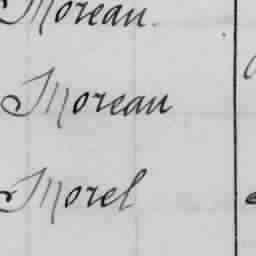 Moreau.
Moreau
Morel